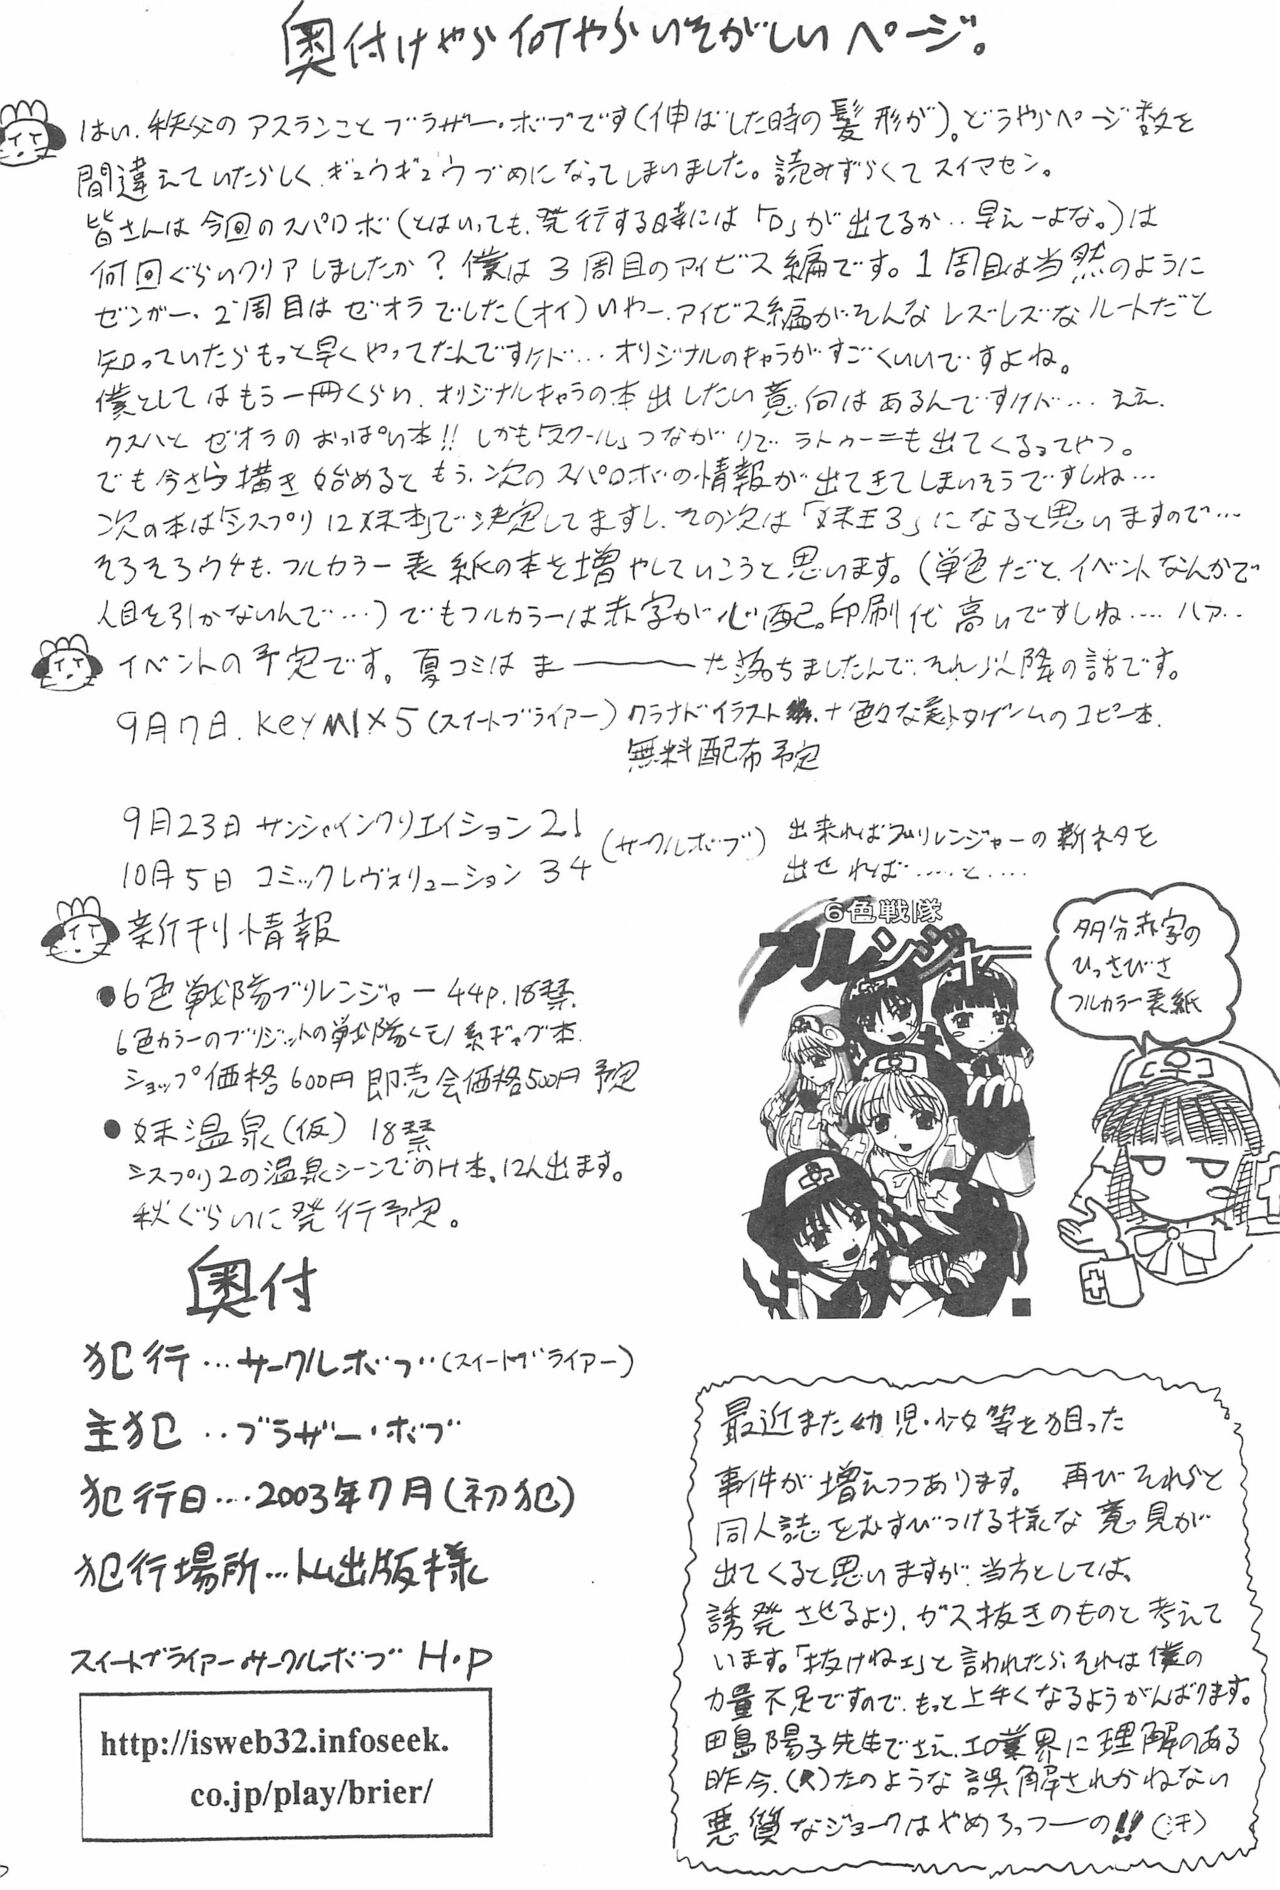 奥付けやら何やらいそがしいページ。
はい、秩父のアスランことブラザー・ボブです(伸ばした時の髪形が)。どうやらページ数を
間違えていたらしく、ギュウギュウづめになってしまいました。読みずらくてスイマセン。
皆さんは今回のスパロボ(とはいっても、発行する時には「D」が出てるか‥早えーよな。)は
何回ぐらいクリアしましたか？僕は3周目のアイビス編です。1周目は当然のように
ゼンガー、2周目はゼオラでした(オイ)いやー、アイビス編がそんなレズレズなルートだと
知っていたらもっと早くやってたんですケド… オリジナルのキャラがすごくいいですよね。
僕としてはもう一冊くらい、オリジナルキャラの本出したい意向はあるんですケド… ええ、
クスハとゼオラのおっぱい本!! しかも「スクール」つながりで ラトゥーニも出てくるってやつ。
でも今さら描き始めるともう、次のスパロボの情報が出てきてしまいそうですしね…
次の本は「シスプリ12妹本」で決定してますし、その次は「妹王3」になると思いますので…
そろそろウチも、フルカラー表紙の本を増やしていこうと思います。(単色だと、イベントなんかで
人目を引かないんで…)でもフルカラーは赤字が心配。印刷代高いですしね…. ハァ‥
イベントの予定です。夏コミはまーーーた落ちましたんで、それ以降の話です。
9月7日、KeyMIX5(スイートブライアー) クラナドイラスト+色々な美ゲームのコピー本、
無料配布予定
9月23日 サンシャインクリエイション21
10月5日 コミックレヴォリューション34
(サークルボブ)
出来ればブリレンジャーの新ネタを
出せれば……と….
新刊情報
●6色戦隊ブリレンジャー 44p.18禁.
6色カラーのブリジットの戦隊くモノ系ギャグ本.
ショップ価格600円 即売会価格500円予定
●妹温泉(仮) 18禁
シスプリ2の温泉シーンでのH本。12人出ます。
秋ぐらいに発行予定。
6色戦隊
ブリレンジャー
多分赤字の
ひっさびさ
フルカラー表紙
奥付
犯行…サークルボブ(スイートブライアー)
主犯‥ブラザー・ボブ
犯行日….2003年7月(初犯)
犯行場所…トム出版様
スイートブライアー.サークルボブ H.P
http://isweb32.infoseek.
co.jp/play/brier/
最近また幼児・少女等を狙った
事件が増えつつあります。 再びそれらと
同人誌をむすびつける様な意見が
出てくると思いますが、当方としては、
誘発させるより、ガス抜きのものと考えて
います。「抜けねェ」と言われたら、それは僕の
力量不足ですので、もっと上手くなるようがんばります。
田島陽子先生でさえ、エロ業界に理解のある
昨今、たのような誤解されかねない
悪質なジョークはやめろっつーの!!(汗)